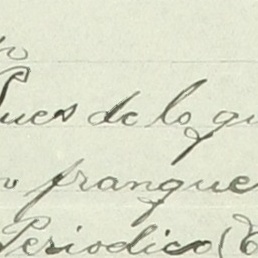 Pues de lo qu
franque
Periodico (E